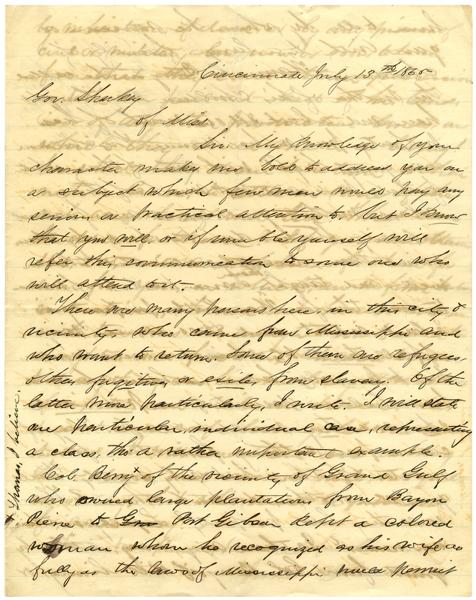 Cincinnati July 13th 1865
Gov. Sharkey
of Miss
Sir. My knowledge of your
character makes me bold to address you on
a subject which few men would pay any
serious or practical attention to, but I know
that you will, or if unable yourself will
refer this communication to some one who
will attend to it.
There are many persons here, in this city &
vicinity, who came from Mississippi and
who want to return. Some of them are refugees
others fugitives or exiles from slavery. Of the
latter more particularly, I write. I will state
one particular, individual case, representing
a class, tho' a rather important example.
Col. Berry x of the vicinity of Grand Gulf
who owned large plantations from Bayou
Pierre to Gra Port Gibson kept a colored
woman whom he recognized as his wife as
fully as the laws of Mississippi would permit
x Thomas, I believe